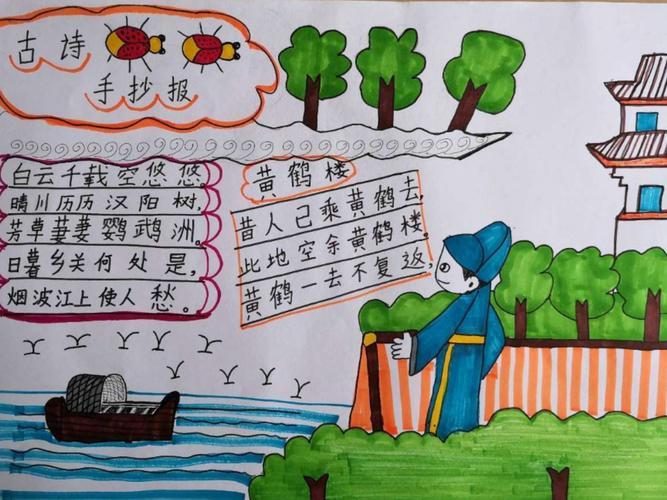 古诗
手抄报
黄鹤楼
昔人已乘黄鹤去,
此地空余黄鹤楼。
黄鹤一去不复返,
白云千载空悠悠。
晴川历历汉阳树,
芳草萋萋鹦鹉洲。
日暮乡关何处是,
烟波江上使人愁。